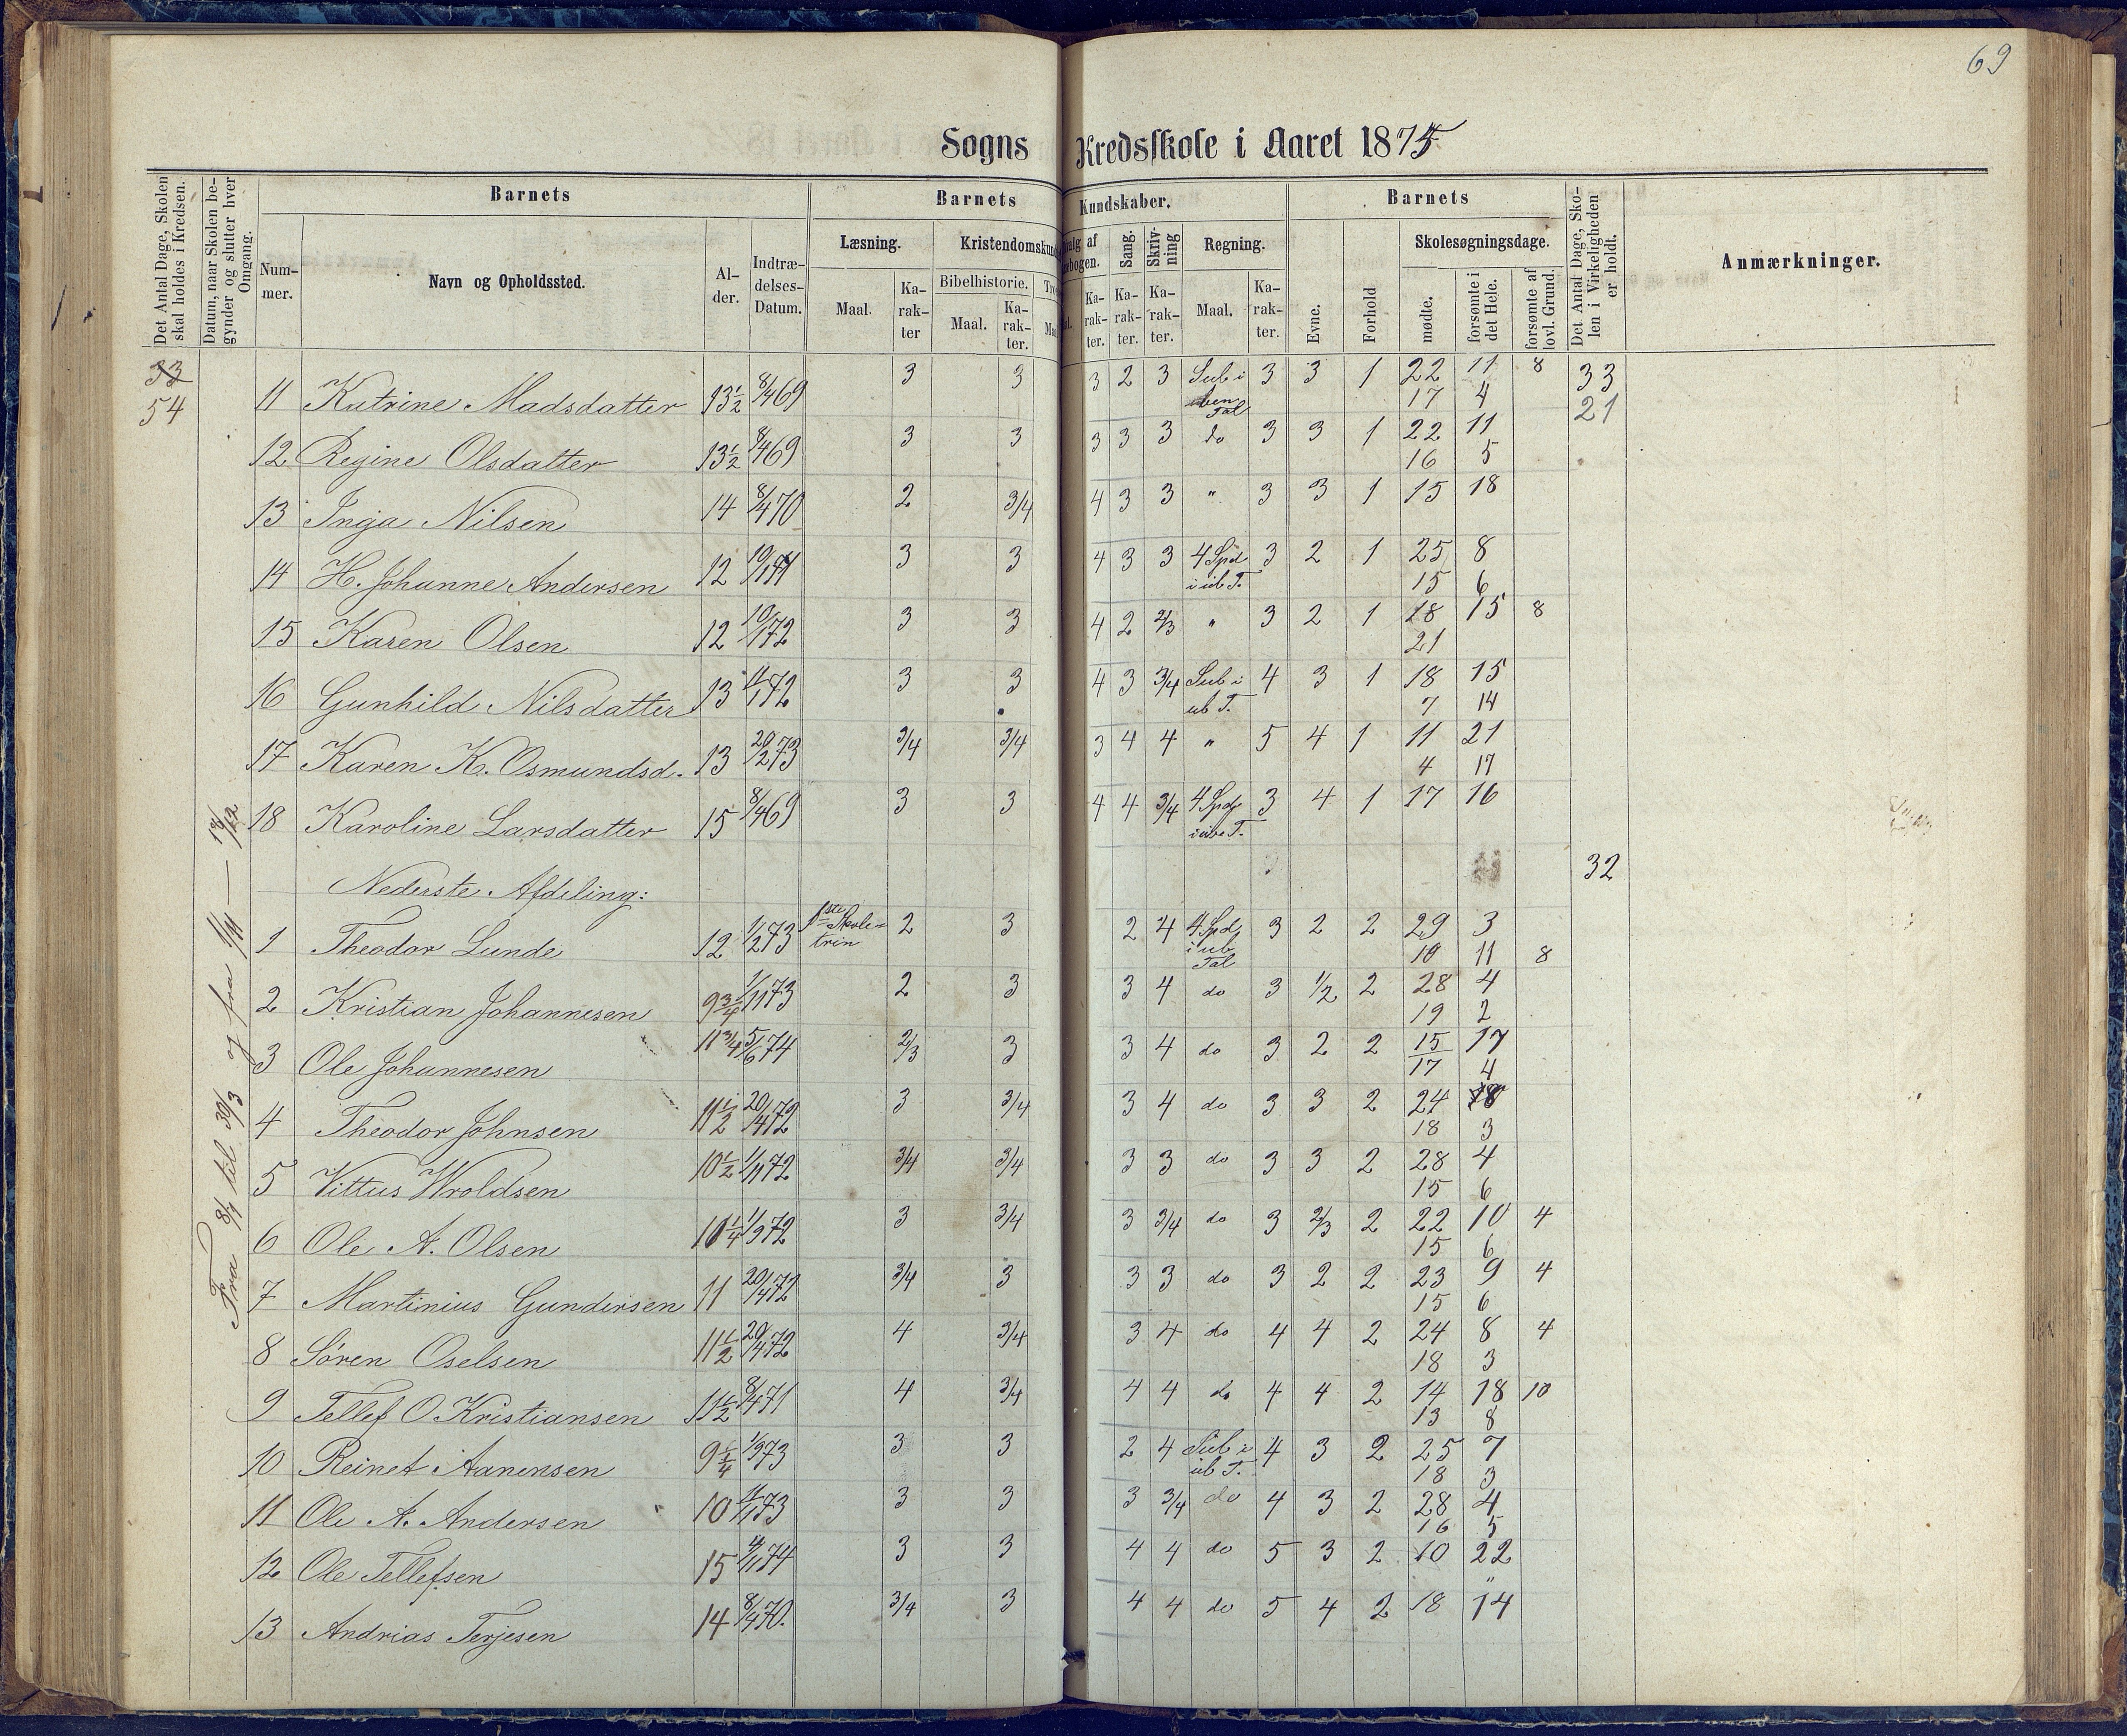 69
Sogns Kredsskole i Aaret 1875
Det Antal Dage, Skolen skal holdes i Kredsen.
Datum, naar Skolen begynder og slutter hver Omgang.
Barnets
Nummer.
Navn og Opholdssted.
Alder.
Indtrædelses-Datum.
Barnets Kundskaber.
Læsning.
Maal.
Karakter
Kristendomskun
Bibelhistorie.
Maal.
Karakter.
valg af
ebogen.
Karakter.
Sang.
Karakter.
Skrivning
Karakter.
Regning.
Maal.
Karakter.
Barnets
Evne.
Forhold
Skolesøgningsdage.
mødte.
forsømte i det Hele.
forsømte af lovl. Grund.
Det Antal Dage, Skolen i Virkeligheden er holdt.
Anmærkninger.
33
54
Fra 8/1 til 30/3 og fra 1/11 — 18/12
11 Katrine Madsdatter 13½ 8/4 69 3 3 3 2 3 Sub i ben Tal 3 3 1 22 11 8 33
17 4 21
12 Regine Olsdatter 13½ 8/4 69 3 3 3 3 3 do 3 3 1 22 11
16 5
13 Inga Nilsen 14 8/4 70 2 3/4 4 3 3 " 3 3 1 15 18
14 H. Johanne Andersen 12 3 3 4 3 3 4 Spd i ub T. 3 2 1 25 8
15 6
15 Karen Olsen 12 10/1 72 3 3 4 2 2/3 " 3 2 1 18 15 8
21
16 Gunhild Nilsdatter 13 3 3 4 3 3/4 Sub i ub T. 4 3 1 18 15
7 14
17 Karen K. Osmundsd. 13 20/2 73 3/4 3/4 3 4 4 " 5 4 1 11 21
4 17
18 Karoline Larsdatter 15 8/4 69 3 3 4 4 3/4 4 Spd i ube T. 3 4 1 17 16
32
Nederste Afdeling:
1 Theodor Lunde 12 1/2 73 1ste Skoletrin 2 3 2 4 4 Spd i ub Tal 3 2 2 29 3
10 11 8
2 Kristian Johannesen 9¾ 1/11 73 2 3 3 4 do 3 1/2 2 28 4
19 2
3 Ole Johannesen 11¾ 5/6 74 2/3 3 3 4 do 3 2 2 15 17
17 4
4 Theodor Johnsen 11½ 20/4 72 3 3/4 3 4 do 3 3 2 24 8
18 3
5 Vittus Wroldsen 10½ 1/11 72 3/4 3/4 3 3 do 3 3 2 28 4
15 6
6 Ole A. Olsen 10¼ 1/9 72 3 3/4 3 3/4 do 3 2/3 2 22 10 4
15 6
7 Martinius Gundersen 11 20/4 72 3/4 3 3 3 do 3 2 2 23 9 4
15 6
8 Sören Oselsen 11½ 20/4 72 4 3/4 3 4 do 4 4 2 24 8 4
18 3
9 Tellef O. Kristiansen 11½ 8/4 71 4 3/4 4 4 do 4 4 2 14 18 10
13 8
10 Reinet Aanensen 9¼ 1/9 73 3 3 2 4 Sub i ub T. 4 3 2 25 7
18 3
11 Ole A. Andersen 10 3 3 3 3/4 do 4 3 2 28 4
16 5
12 Ole Tellefsen 15 3 3 4 4 do 5 3 2 10 22
"
13 Andrias Terjesen 14 8/4 70. 3/4 3 4 4 do 5 4 2 18 14